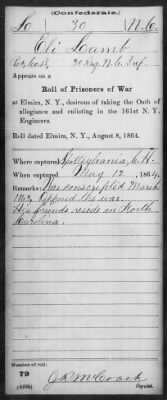 (Confederate.)
L | 30 | N.C.
Eli Lamb
Co. B, 30 Reg. N.C. Inf.
Appears on a
Roll of Prisoners of War
at Elmira, N. Y., desirous of taking the Oath of
allegiance and enlisting in the 161st N. Y.
Engineers.
Roll dated Elmira, N. Y., August 8, 1864.
Where captured Spottsylvania, C. H.
When captured May 12, 1864.
Remarks: Was conscripted March
opposed the war.
His friends reside in North
Carolina.
Number of roll:
79
Copyist.